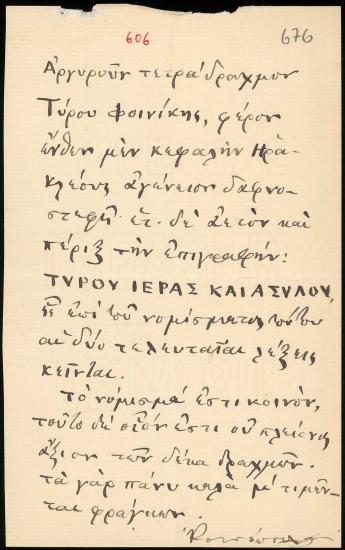 606
676
Ἀργυροῦν τετράδραχμον
Τύρου Φοινίκης, φέρον
ἔνθεν μὲν κεφαλὴν Ἡρα-
κλέους ἀγένειον δαφνο-
στεφῆ ἑτ. δὲ ἀετὸν καὶ
πέριξ τὴν ἐπιγραφήν:
ΤΥΡΟΥ ΙΕΡΑΣ ΚΑΙ ΑΣΥΛΟΥ,
ἐπὶ τοῦ νομίσματος τούτου
αἱ δύο τελευταῖαι λέξεις
κεῖνται.
Τὸ νόμισμά ἐστι κοινὸν,
τοῦτο δὲ οἷόν ἐστι οὐ πλείονος
ἄξιον τῶν δέκα δραχμῶν.
τὰ γὰρ πάνυ καλὰ μʹ τιμῶν-
ται φράγκων.